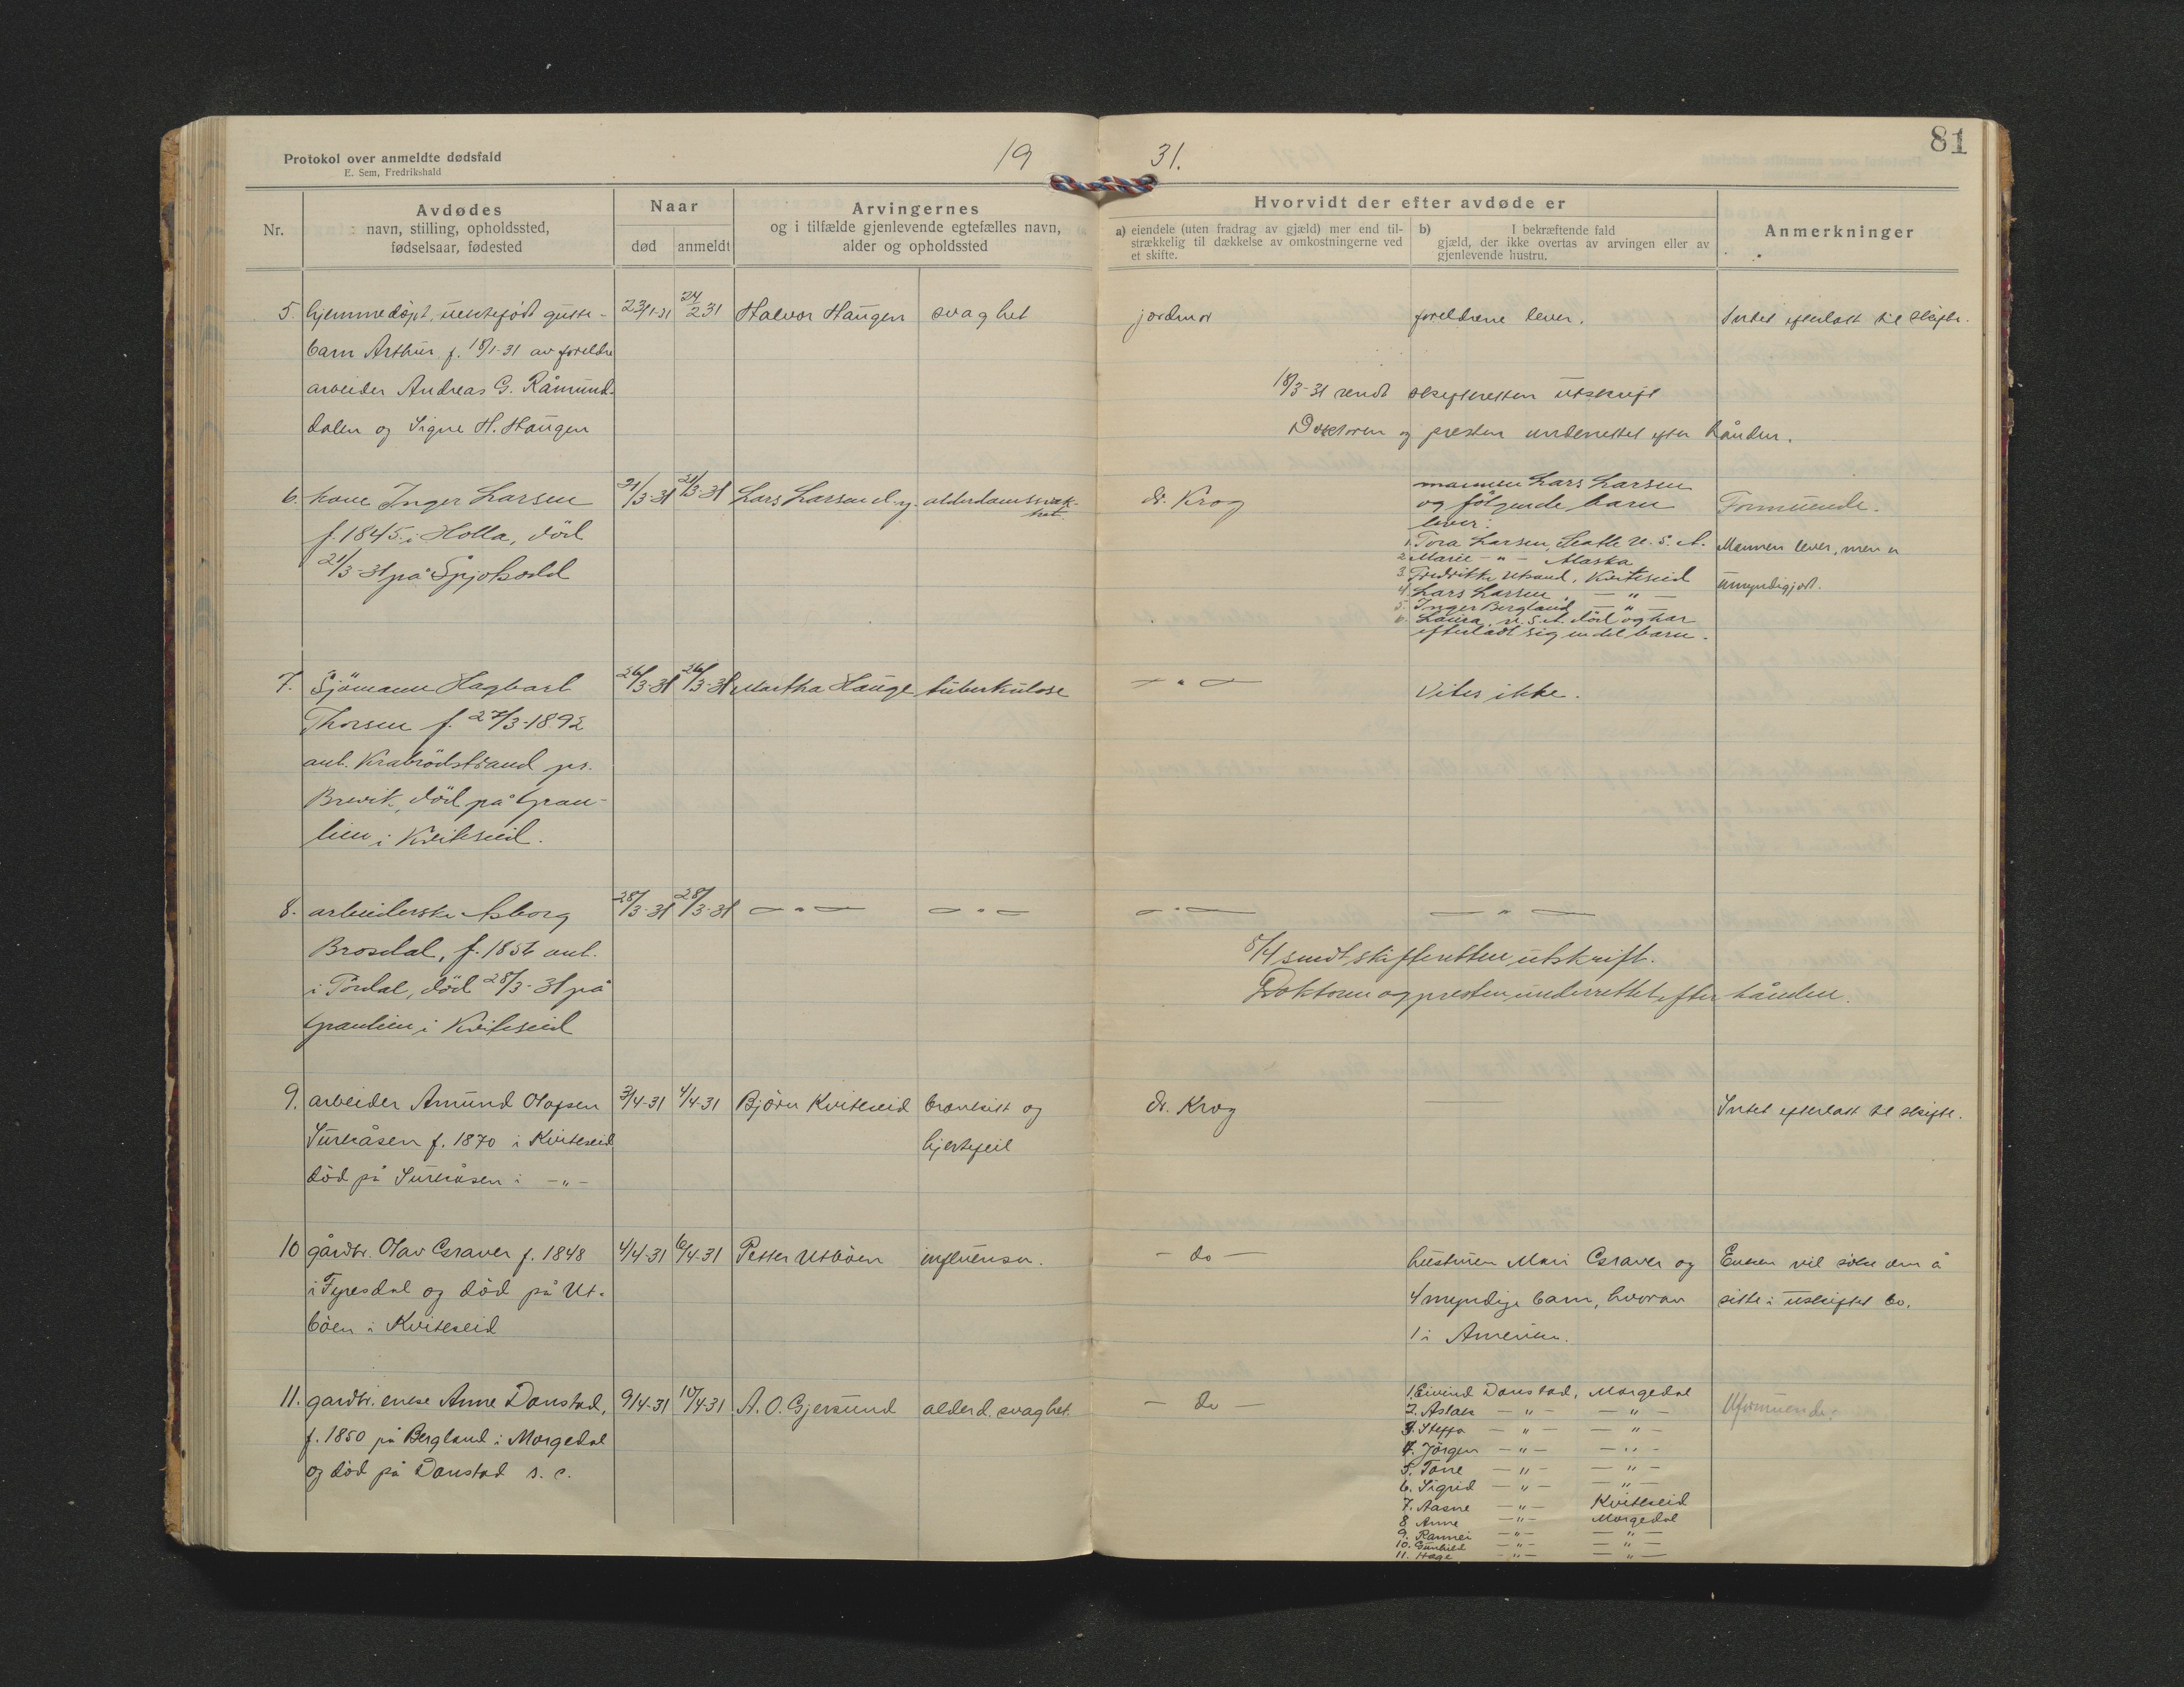 Protokol over anmeldte dødsfald
E. Sem, Fredrikshald
19 31.
81
Nr.
Avdødes
navn, stilling, opholdssted,
fødselsaar, fødested
Naar
død
anmeldt
Arvingernes
og i tilfælde gjenlevende egtefælles navn,
alder og opholdssted
Hvorvidt der efter avdøde er
a) eiendele (uten fradrag av gjæld) mer end til-
strækkelig til dækkelse av omkostningerne ved
et skifte.
b) I bekræftende fald
gjæld, der ikke overtas av arvingen eller av
gjenlevende hustru.
Anmerkninger
5. hjemmedøpt, uektefödt gutte-
barn Arthur f. 18/1-31 av foreldre
arbeider Andreas G. Råmund-
dalen og Signe H. Haugen
23/1-31
24/2 31
Halvor Haugen
svaghet
jordmor
foreldrene lever.
Intet efterlatt til skifte.
18/3-31 sendt skifteretten utskrift
Doktoren og presten underrettet efter hånden.
6. kone Inger Larsen
f. 1845 i Holla, död
21/3-31 på Spjosodd
21/3-31
21/3-31
Lars Larsen d.y.
alderdomssvak-
het.
dr. Krog
mannen Lars Larsen
og fölgende barn
lever:
1. Tora Larsen, Seatle U.S.A.
2. Marie - " - Alaska
3. Fredrikke Utsund, Kviteseid
4. Lars Larsen, - " -
5. Inger Bergland - " -
6. Laura, U.S.A. död og har
efterladt sig en del barn.
Formuende.
Mannen lever, men er
umyndigjort.
7. Sjömann Hagbart
Thorsen f. 27/3-1892
anb. Krabrödstrand pr.
Brevik, död på Gran-
lien i Kviteseid.
26/3-31
26/3-31
Martha Hauge
tuberkulose
- " -
Vites ikke.
8. arbeiderske Asborg
Brosdal, f. 1856 anb.
i Tördal, död 28/3-31 på
Granlien i Kviteseid
28/3-31
28/3-31
- " -
- " -
- " -
- " -
8/4 sendt skifteretten utskrift.
Doktoren og presten underrettet efter hånden.
9. arbeider Amund Olafsen
Turkåsen f. 1870 i Kviteseid
död på Turkåsen i - " -
3/4-31
4/4-31
Björn Kviteseid
bronkitt og
hjertefeil
dr. Krog
Intet efterlatt til skifte.
10 gårdbr. Olav Csraver f. 1848
i Fyresdal og död på Ut-
böen i Kviteseid
4/4-31
6/4-31
Petter Utböen
influensa.
- do -
hustruen Mari Csraver og
4 myndige barn, hvorav
1 i Amerika.
Enken vil söke om å
sitte i uskiftet bo.
11. gardbr. enke Anne Donstad,
f. 1850 på Bergland i Morgedal
og död på Donstad s. c.
9/4-31
10/4-31
A. O. Gjersund
alderd. svaghet.
- do -
1. Eivind Donstad, Morgedal
2. Aslak - " - - " -
3. Steffa - " - - " -
4. Jörgen - " - - " -
5. Tone - " - - " -
6. Sigrid - " - - " -
7. Aasne - " - Kviteseid
8 Anne - " - Morgedal
9. Rannei - " - - " -
10. Gunhild - " - - " -
11. Hage - " - - " -
Uformuende.